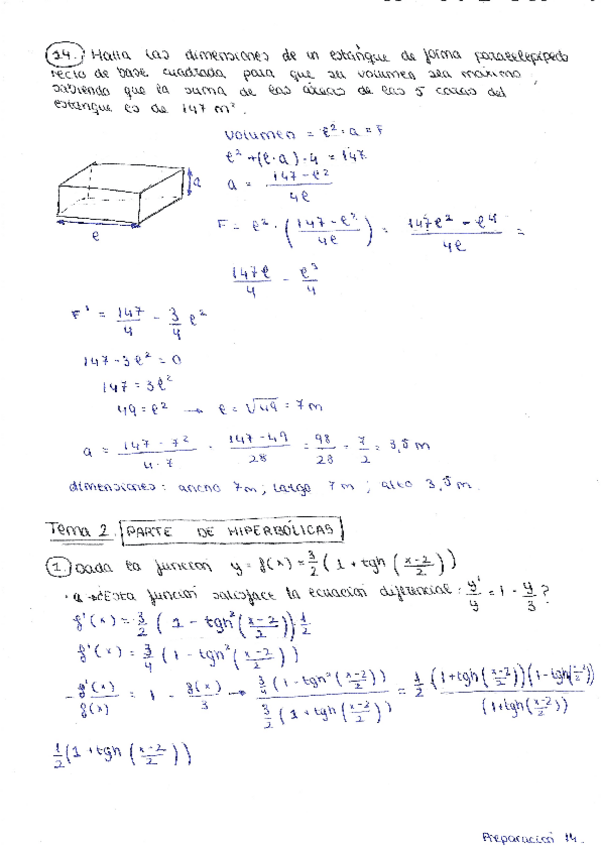 24. Halla las dimensiones de un estanque de forma paralelepípedo
recto de base cuadrada para que su volumen sea máximo,
sabiendo que la suma de las áreas de las 5 caras del
estanque es de 147 m².
Volumen = ℓ² · a = F
ℓ² + (ℓ · a) · 4 = 147
a = (147 - ℓ²)/4ℓ
a
ℓ
F = ℓ² · ((147 - ℓ²)/4ℓ) = (147ℓ² - ℓ⁴)/4ℓ =
147ℓ/4 - ℓ³/4
F' = 147/4 - 3/4 ℓ²
147 - 3ℓ² = 0
147 = 3ℓ²
49 = ℓ² → ℓ = √49 = 7m
a = (147 - 7²)/(4·7) = (147 - 49)/28 = 98/28 = 7/2 = 3,5 m
dimensiones: ancho 7m; largo 7m; alto 3,5 m.
Tema 2. PARTE DE HIPERBÓLICAS
1. Dada la función y = f(x) = 3/2 (1 + tgh((x-2)/2))
· a → Esta función satisface la ecuación diferencial: y'/y = 1 - y/3?
f'(x) = 3/2 (1 - tgh²((x-2)/2)) 1/2
f'(x) = 3/4 (1 - tgh²((x-2)/2))
- f'(x)/f(x) = 1 - f(x)/3 → 3/4 (1 - tgh²((x-2)/2)) / 3/2 (1 + tgh((x-2)/2)) = 1/2 (1 + tgh((x-2)/2))(1 - tgh((x-2)/2)) / (1 + tgh((x-2)/2))
1/2 (1 + tgh((x-2)/2))
Preparación 14.